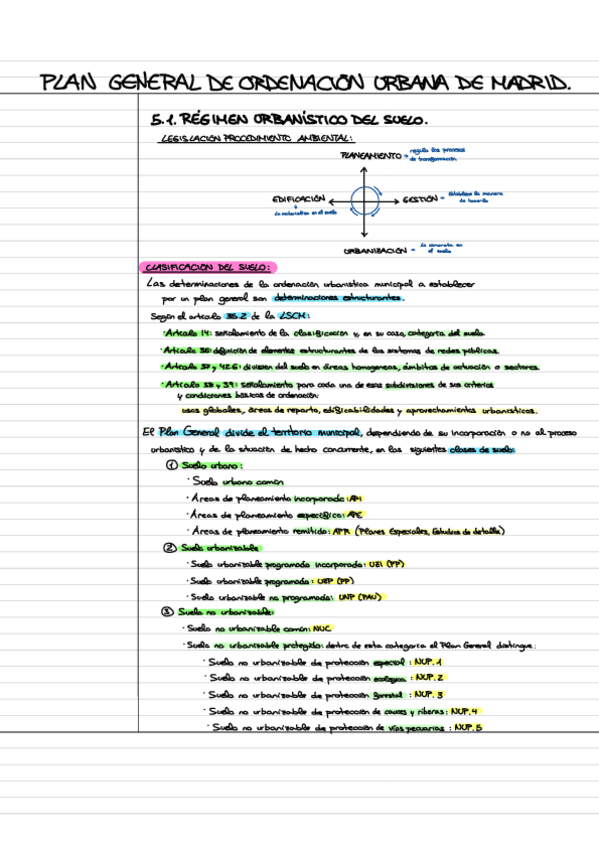 PLAN GENERAL DE ORDENACIÓN URBANA DE MADRID.
5.1. RÉGIMEN URBANÍSTICO DEL SUELO.
LEGISLACIÓN PROCEDIMIENTO AMBIENTAL:
PLANEAMIENTO → regula los procesos
de transformación
EDIFICACIÓN
GESTIÓN → Establece la manera
de hacerlo
Lo materializa en el suelo
URBANIZACIÓN → Lo concreta en
el suelo
CLASIFICACIÓN DEL SUELO:
Las determinaciones de la ordenación urbanística municipal a establecer
por un plan general son determinaciones estructurantes.
Según el artículo 35.2 de la LSCM:
· Artículo 14: señalamiento de la clasificación y, en su caso, categoría del suelo.
· Artículo 36: definición de elementos estructurantes de los sistemas de redes públicas.
· Artículo 37 y 42.6: división del suelo en áreas homogéneas, ámbitos de actuación o sectores.
· Artículo 38 y 39: señalamiento para cada una de esas subdivisiones de sus criterios
y condiciones básicas de ordenación:
usos globales, áreas de reparto, edificabilidades y aprovechamientos urbanísticos.
El Plan General divide el territorio municipal, dependiendo de su incorporación o no al proceso
urbanístico y de la situación de hecho concurrente, en las siguientes clases de suelo:
① Suelo urbano:
· Suelo urbano común
· Áreas de planeamiento incorporado: API
· Áreas de planeamiento específico: APE
· Áreas de planeamiento remitido: APR (Planes Especiales, Estudios de detalle)
② Suelo urbanizable
· Suelo urbanizable programado incorporado: UZI (PP)
· Suelo urbanizable programado: UZP (PP)
· Suelo urbanizable no programado: UNP (PAU)
③ Suelo no urbanizable:
· Suelo no urbanizable común: NUC
· Suelo no urbanizable protegido: dentro de esta categoría el Plan General distingue:
· Suelo no urbanizable de protección especial: NUP.1
· Suelo no urbanizable de protección ecológica: NUP.2
· Suelo no urbanizable de protección forestal: NUP.3
· Suelo no urbanizable de protección de cauces y riberas: NUP.4
· Suelo no urbanizable de protección de vías pecuarias: NUP.5